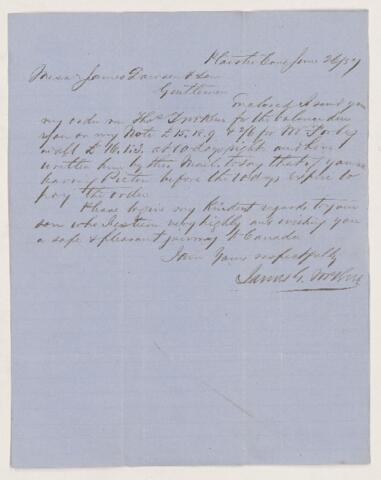 June 26/57
Messrs James Dawson & Son
Gentlemen
Enclosed I send you
my order on Thos for the balance due
you on my Note £15.18.9 & 7/6 for Mr
in all £16. at 10 days sight and have
written him by this Mail to say that if you are
leaving Pictou before the 10 days expire to
pay the order
Please to give my kindest regards to your
son who I esteem very highly and wishing you
a safe & pleasant journey to Canada
I am Yours respectfully
James G.